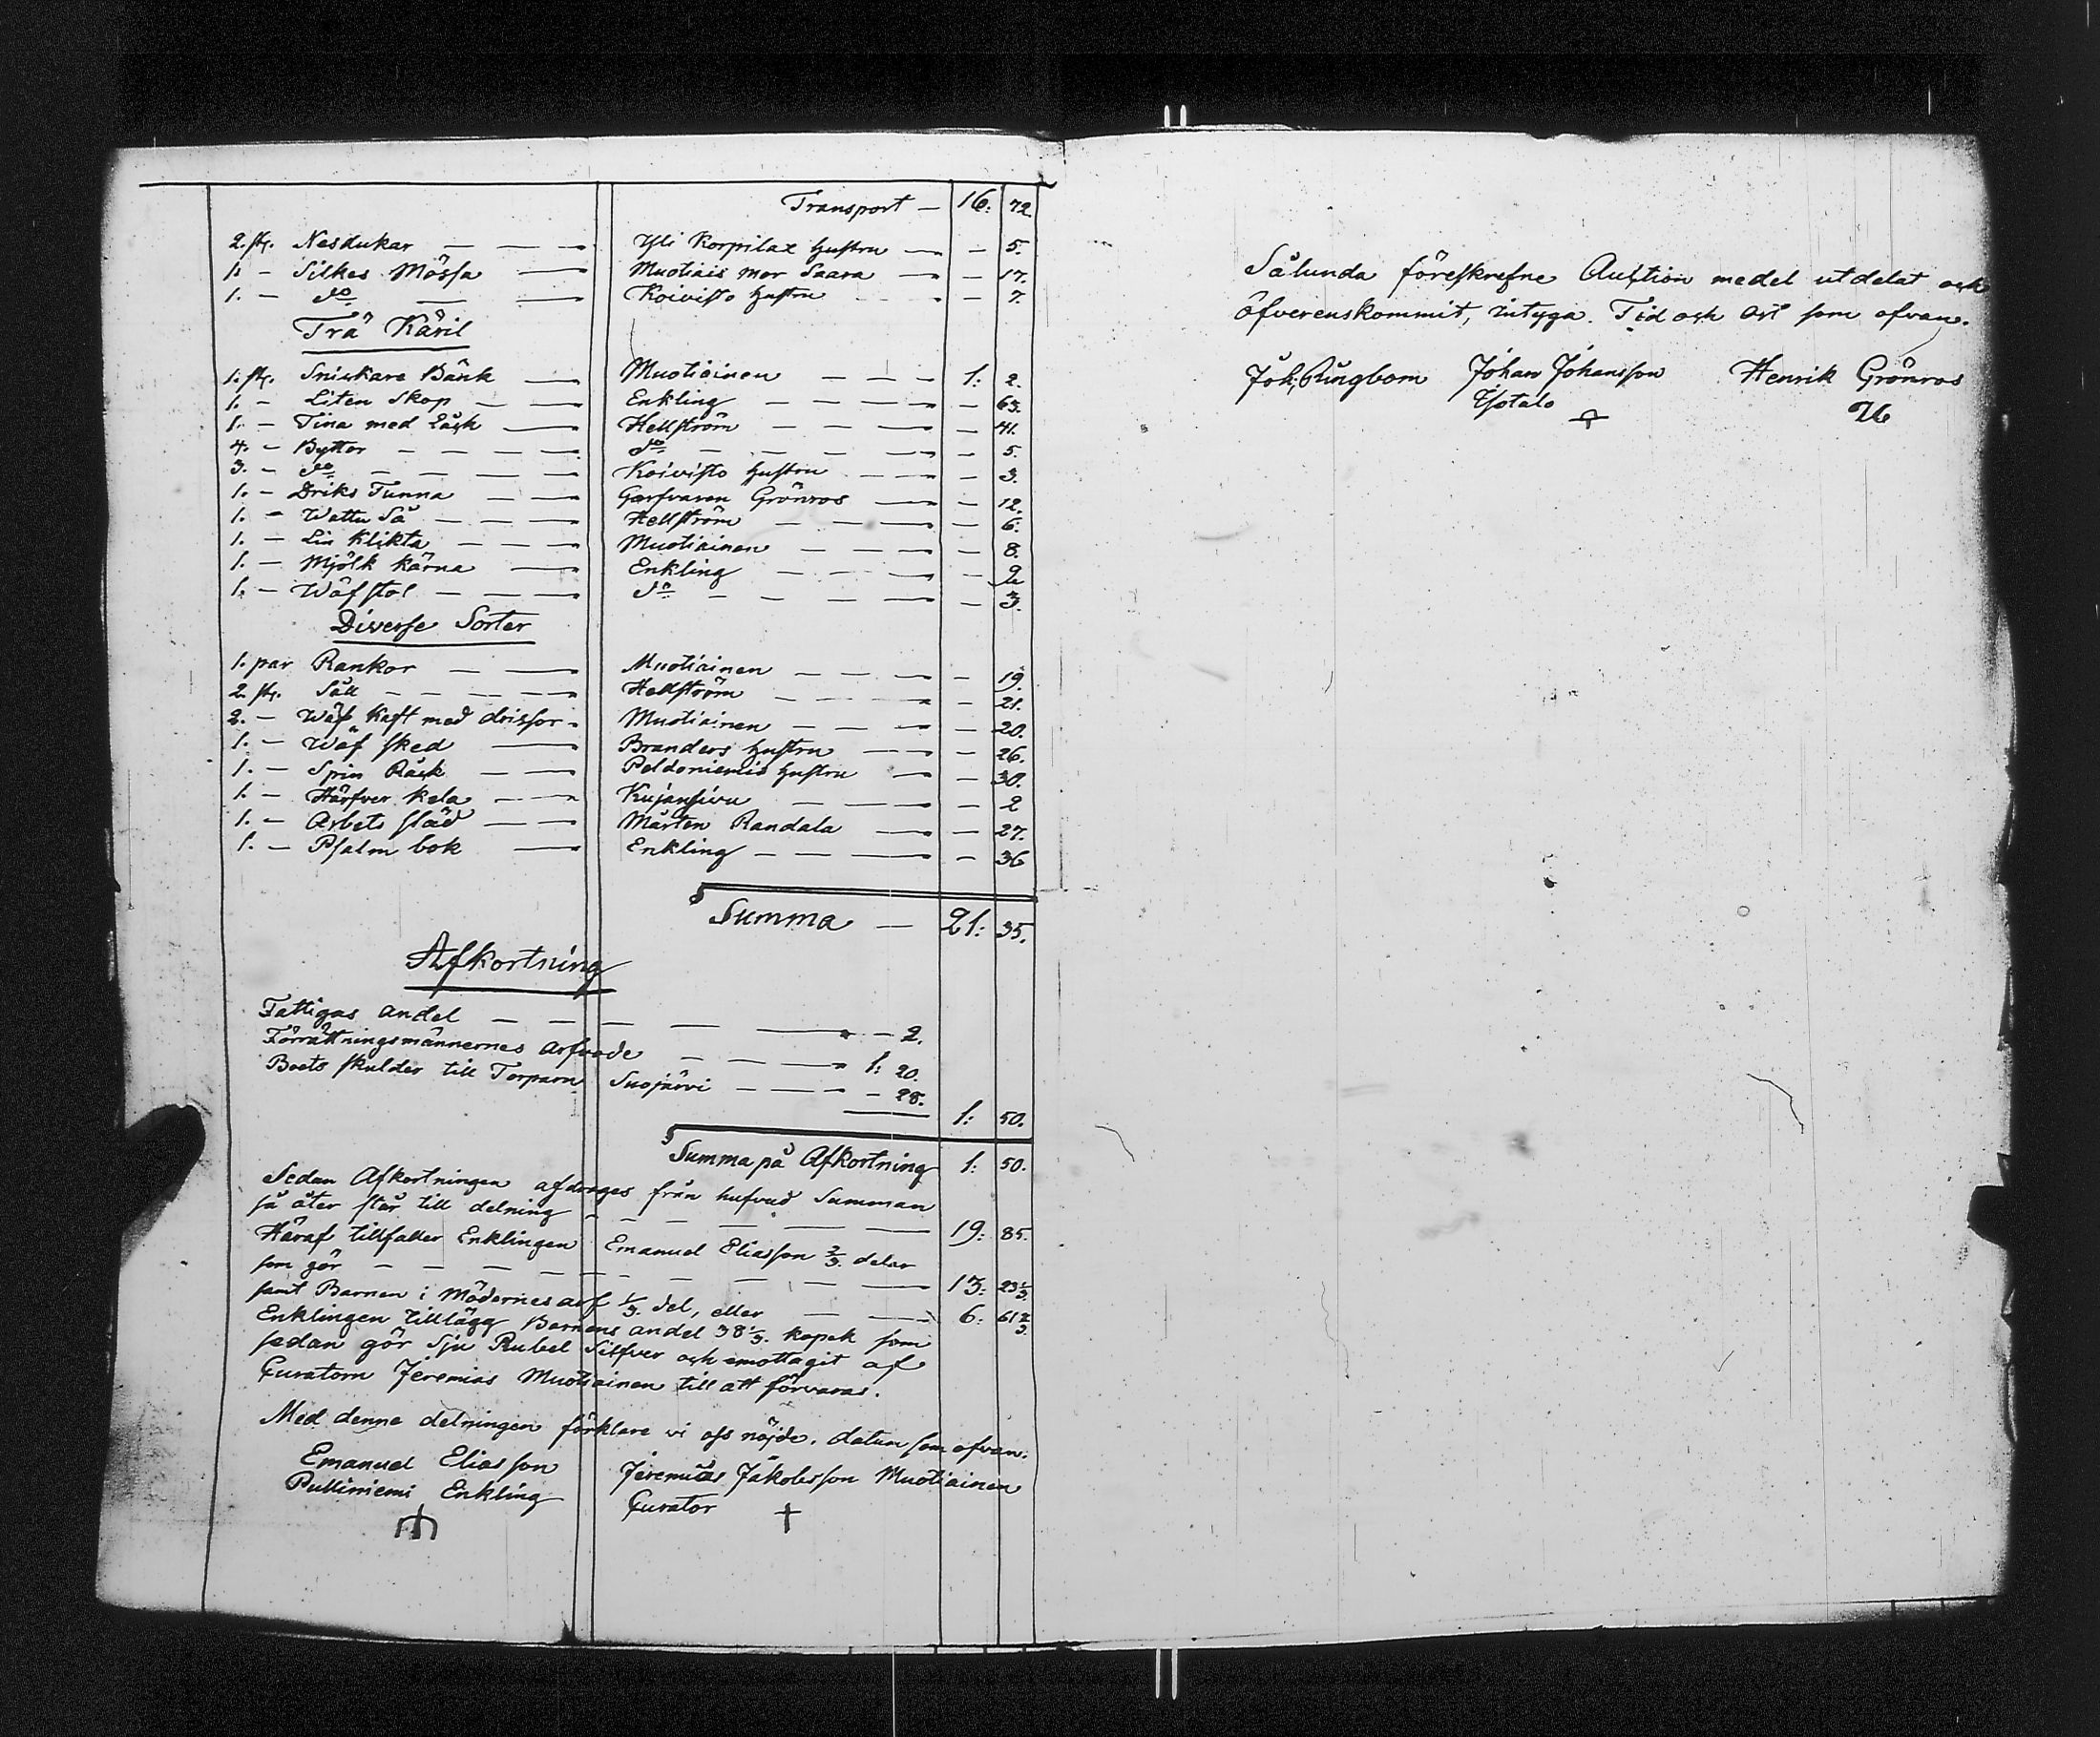 Transport — 16: 72.
2. st. Nesdukar — — — Yli Korpilax Hustru — — 5.
1. — Silkes Mössa — Muotiais mor Saara — — 17.
1. — do — — Koivisto Hustru — — 7.
Trä Käril
1. st. Snickare Bänk — Muotiainen — — — 1: 2.
1. — Liten Skop — — Enkling — — — — — 63.
1. — Tina med Låck — Hellström — — — — — 41.
4. — Byttor — — — — do — — — — — 5.
3. — do — — — — Koivisto Hustru — — — 3.
1. — Driks Tunna — — Garfvaren Grönros — — 12.
1. — Wattu Så — — — Hellström — — — — 6.
1. — Lin Klikta — — — Muotiainen — — — — 8.
1. — Mjölk kärna — Enkling — — — — 2
1. — Wäfstol — — — do — — — — — 3.
Diverse Sorter
1. par Rankor — — Muotiainen — — — — 19.
2. st. Såll — — — — Hellström — — — — 21.
2. — Wäf Kaft med drissor — Muotiainen — — — 20.
1. — Wäf sked — Branders Hustru — — — 26.
1. — Spin Råck — — Peldoniemis Hustru — — 30.
1. — Härfver kela — — Kujansivu — — — 2
1. — Arbets släd — — Mårten Randala — — 27.
1. — Psalm bok — Enkling — — — — 36
Summa — 21: 35.
Afkortning
Fattigas andel — — — — — — 2.
Förrättningsmännernes arfvode — — — 1: 20.
Boets skulder till Torparn Suojärvi — — — — 28.
1: 50.
Summa på Afkortning 1: 50.
Sedan Afkortningen afdrages från hufvud Summan
så åter står till delning — — — — — 19: 85.
Häraf tillfaller Enklingen Emanuel Eliasson 2/3. delar
som gör — — — — — — — — 13: 23 1/3.
samt Barnen i Mödernes arf 1/3. del, eller — — 6: 61 2/3.
Enklingen tillägg Barnens andel 38 1/3. kopek som
sedan gör Sju Rubel Silfver och emottagit af
Curatorn Jeremias Muotiainen till att förvaras.
Med denna delningen förklare vi oss nöjde. datum som ofvan.
Emanuel Eliasson Jeremias Jakobsson Muotiainen
Pulliniemi Enkling Curator
Sålundaföreskrefne Auction medel utdelat och
öfverenskommit, intyga. Tid och ort som ofvan.
Joh: Ringbom Johan Johansson Henrik Grönros
Isotalo